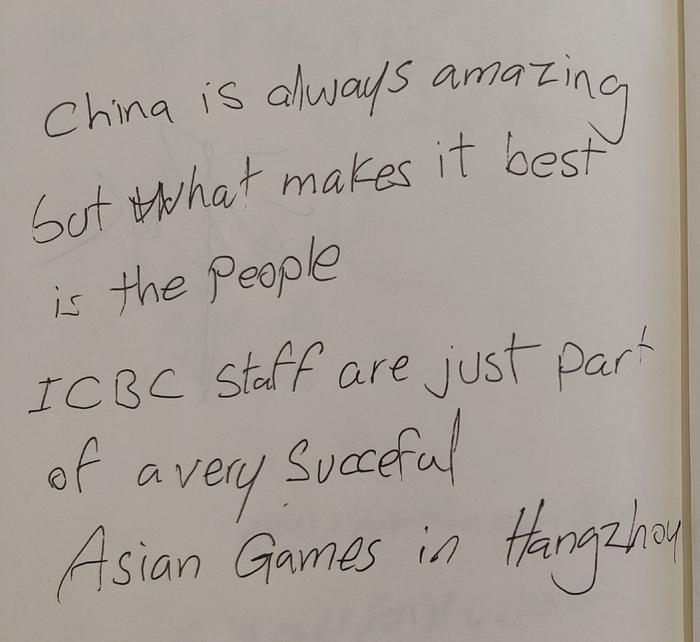 China is always amazing
but what makes it best
is the People
ICBC staff are just part
of a very Succeful
Asian Games in Hangzhoy